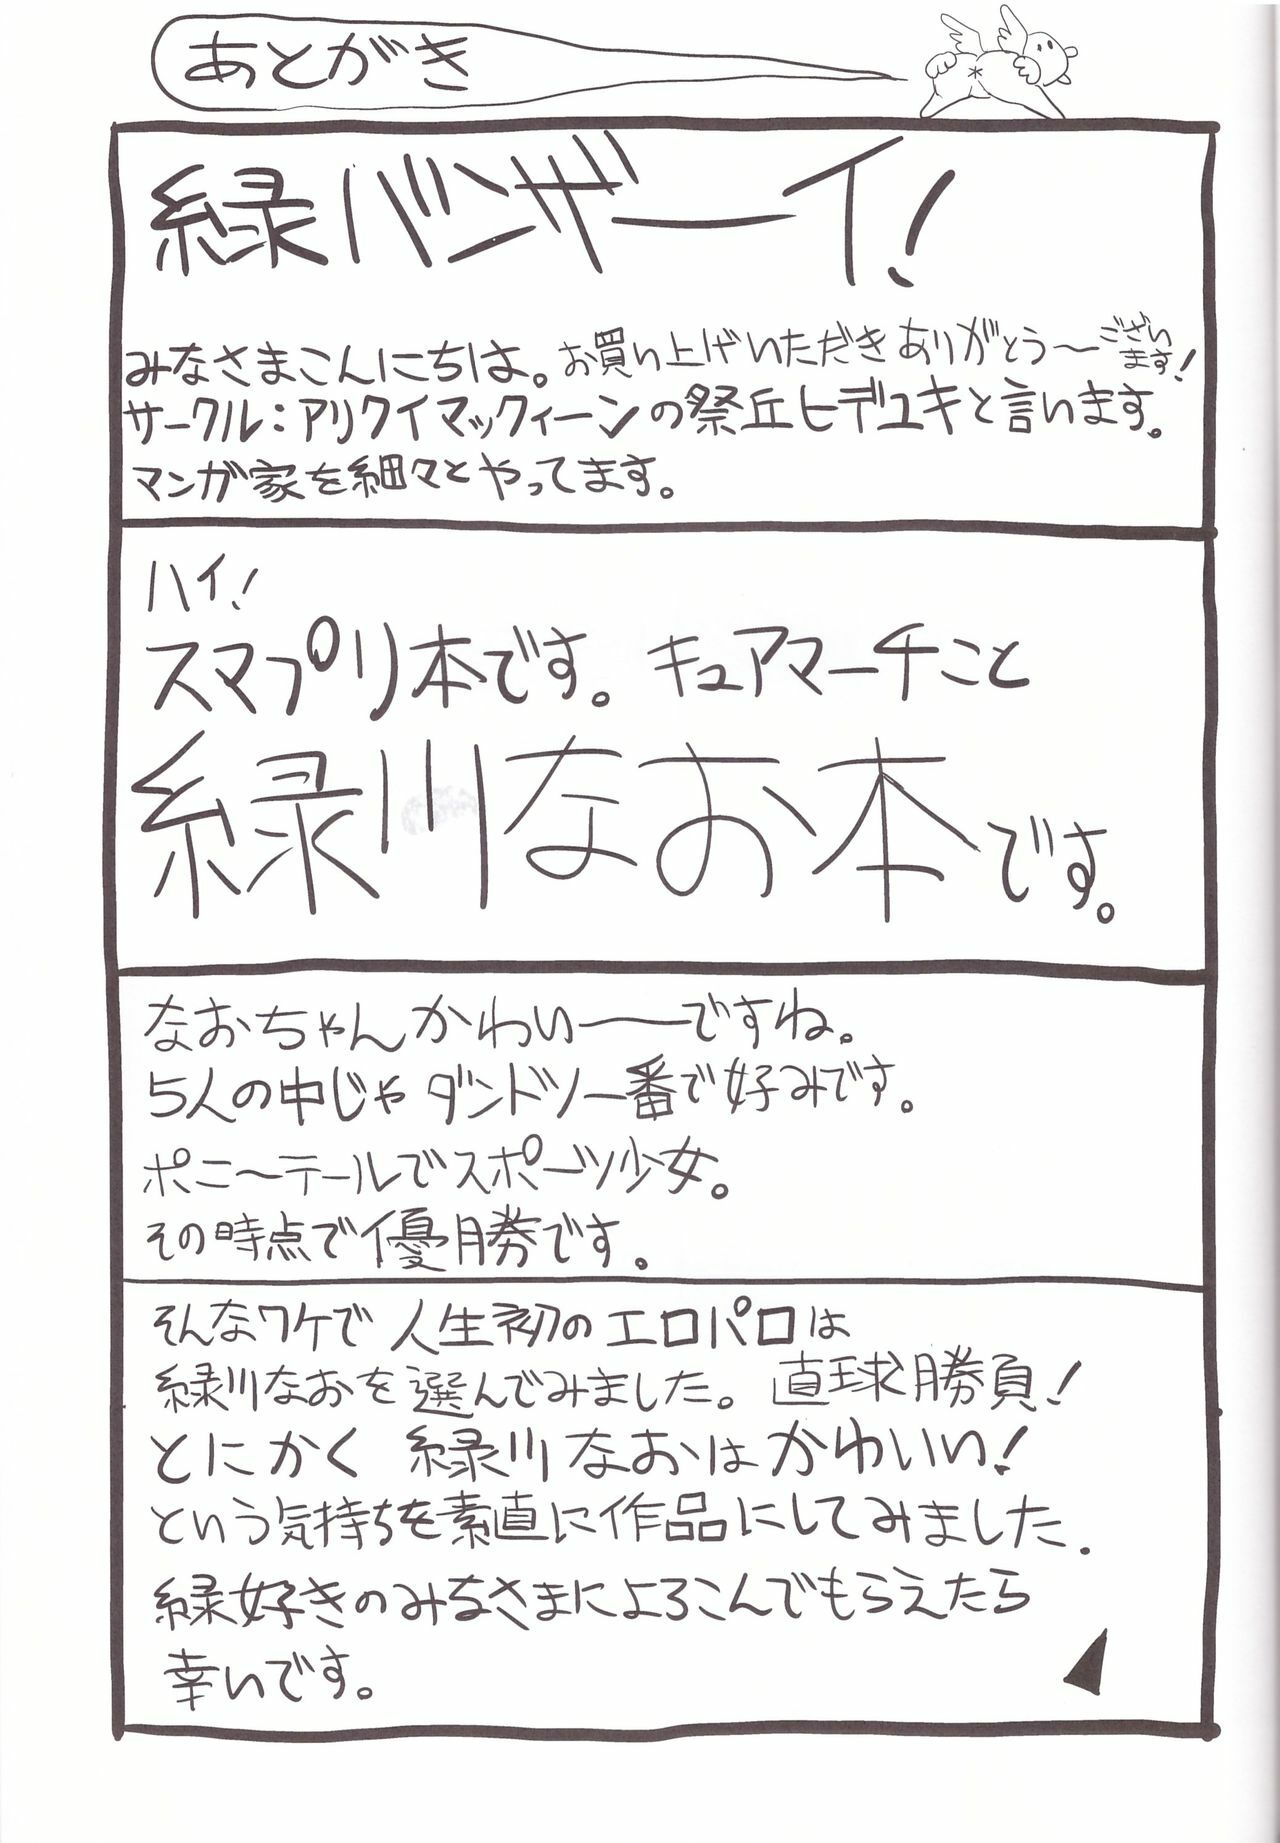 あとがき
緑バンザーイ!
みなさまこんにちは。お買い上げいただきありがとう〜ございます!
サークル:アリクイマックイーンの祭丘ヒデユキと言います。
マンガ家を細々とやってます。
ハイ!
スマプリ本です。キュアマーチこと
緑川なお本です。
なおちゃんかわいーーですね。
5人の中じゃダンドツ一番で好みです。
ポニ〜テールでスポーツ少女。
その時点で優勝です。
そんなワケで人生初のエロパロは
緑川なおを選んでみました。直球勝負!
とにかく 緑川なおはかわいい!
という気持ちを素直に作品にしてみました.
緑好きのみなさまによろこんでもらえたら
幸いです。